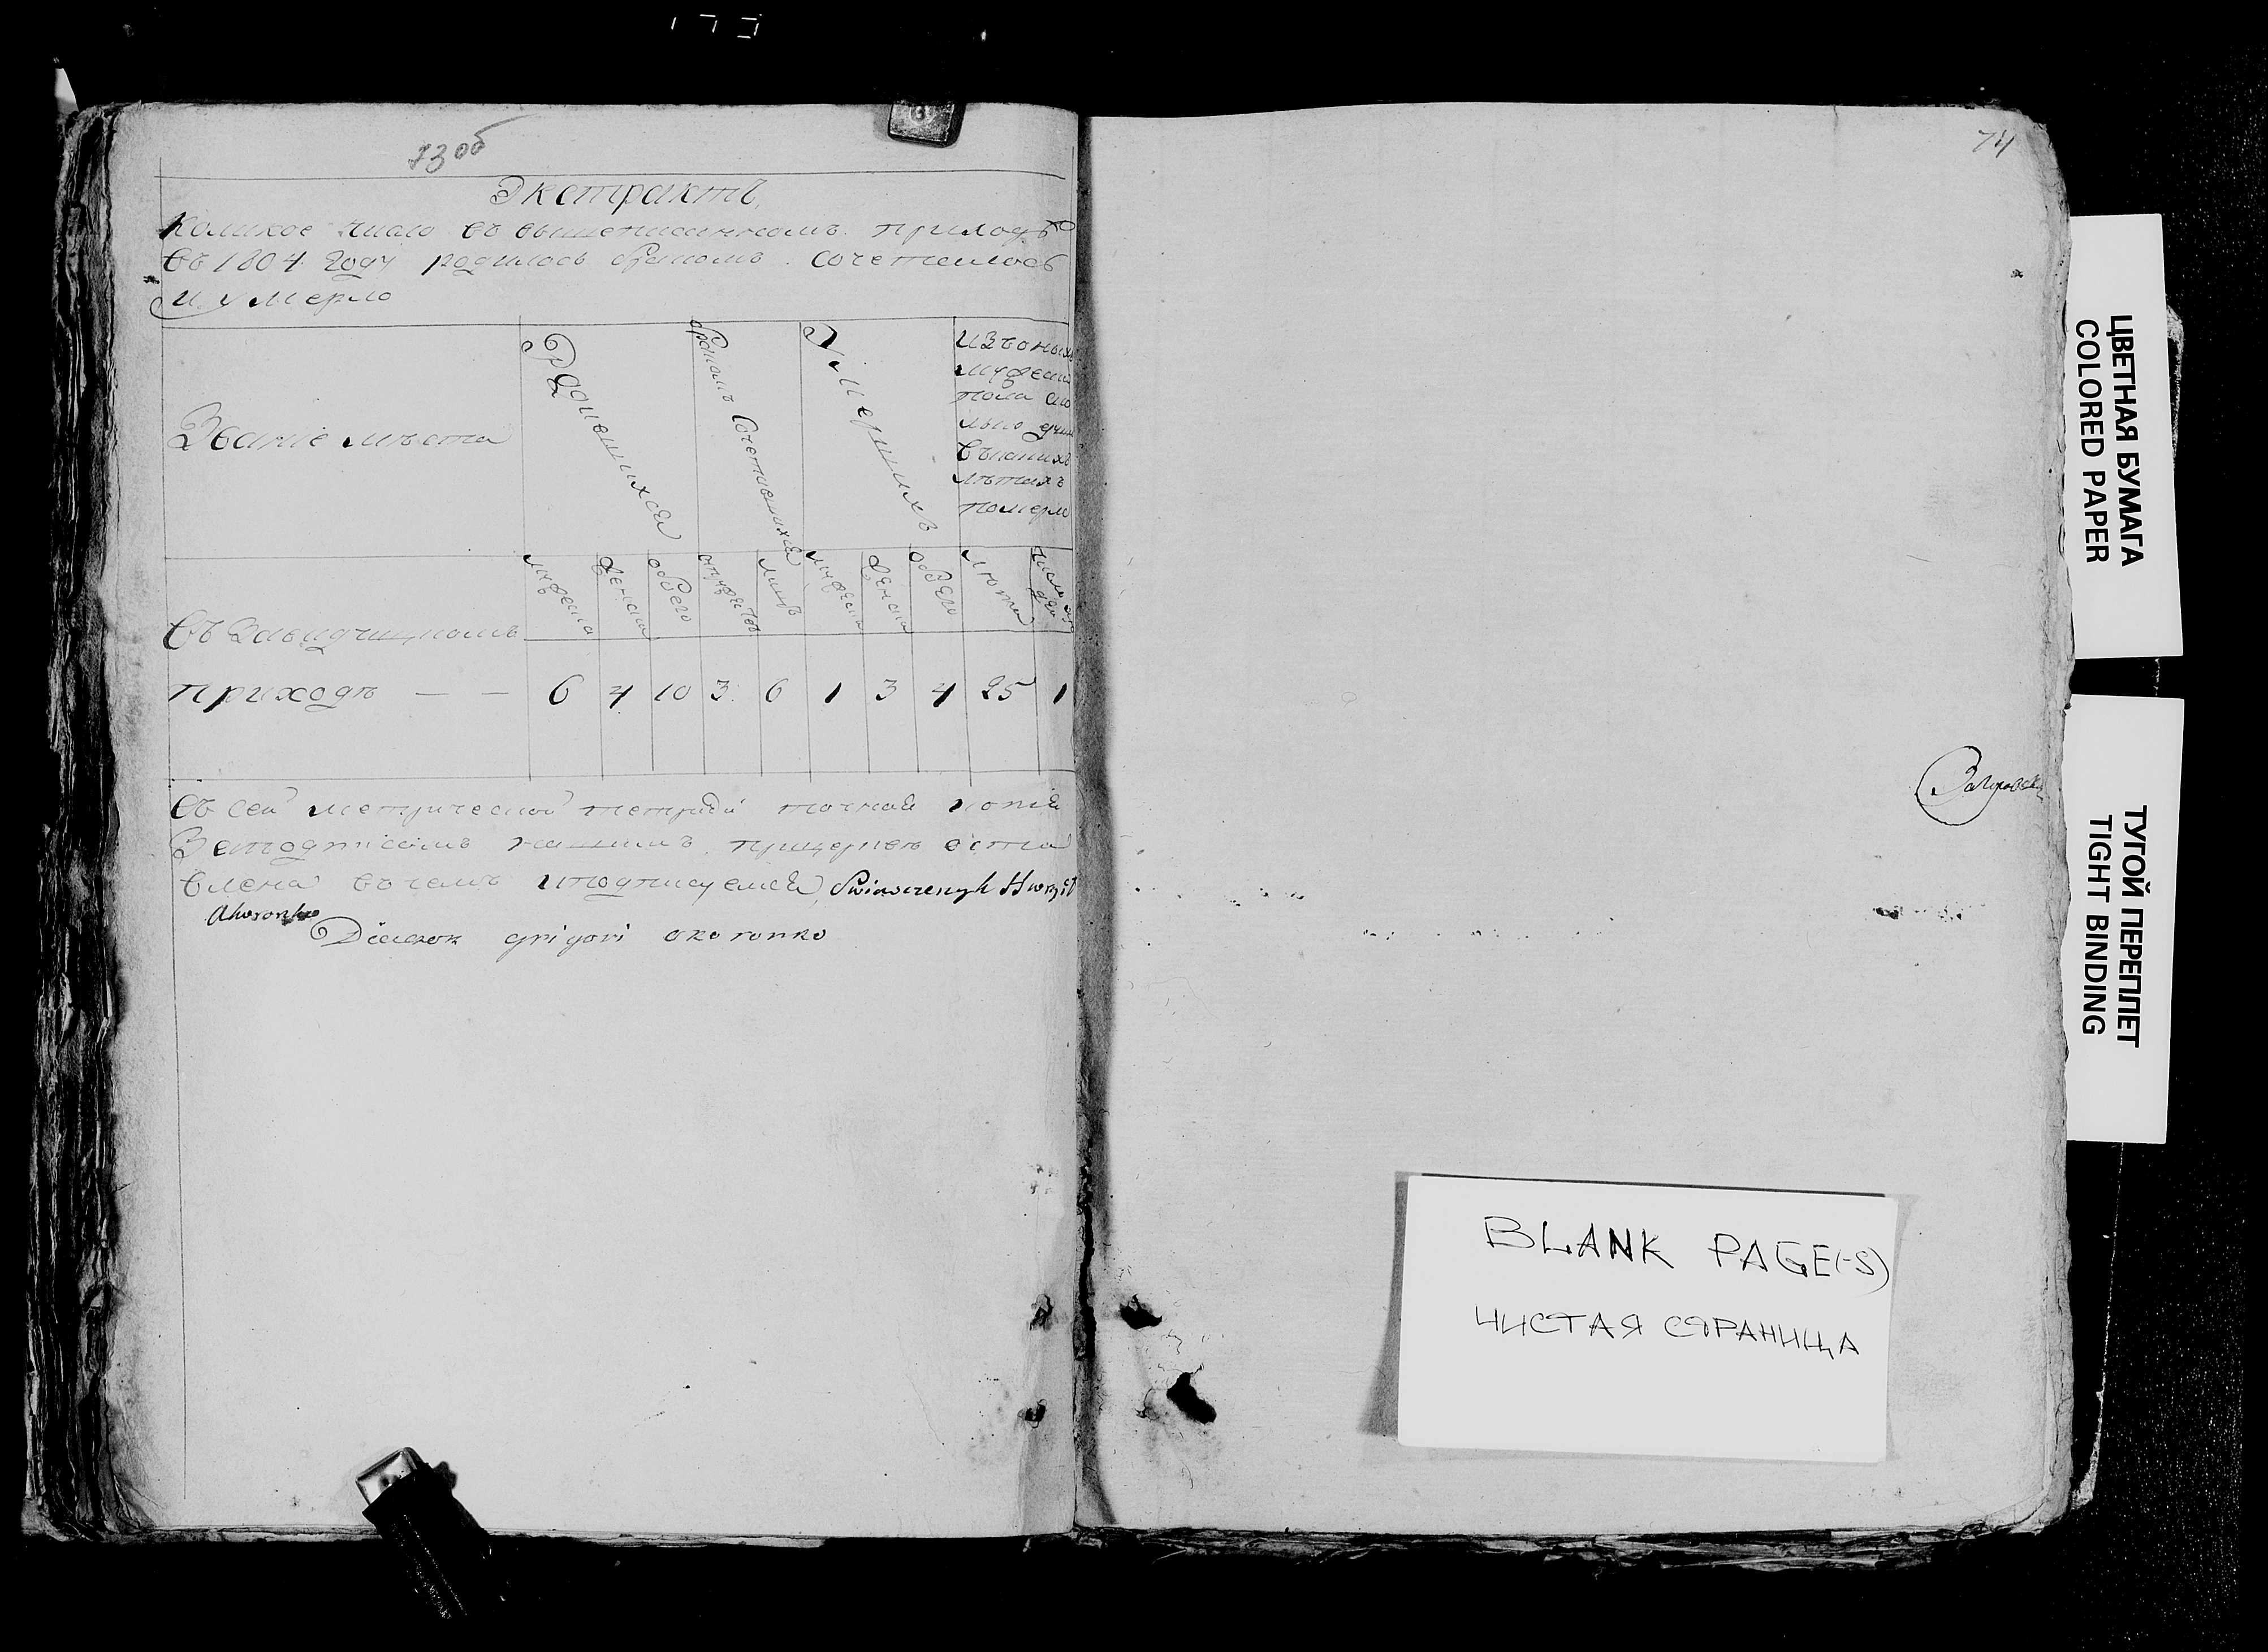 73 об
Экстрактъ,
Каликое число въ вышеписанномъ приходѣ
въ 1804 году родилось бракомъ сочеталось
и умерло
Званіе мѣста
Родившихся
бракомъ Сочетавшихся
Умершихъ
изъоныхъ
мужеска
пола ско
лько душъ
въкакихъ
лѣтахъ
померло
мужеска
женска
обоего
супружествъ
лицъ
мужеска
женска
обоего
лѣта
число
приходѣ — — 6 4 10 3 6 1 3 4 25 1
Съ сей метрической тетради точная копія
Заподписомъ нашимъ прицерквѣ оста
влена въчемъ иподписуемся, Swiaszczenyk
Diaczok grigori okoronko
74
ЦВЕТНАЯ БУМАГА
COLORED PAPER
ТУГОЙ ПЕРЕПЛЕТ
TIGHT BINDING
BLANK PAGE(-S)
ЧИСТАЯ СТРАНИЦА